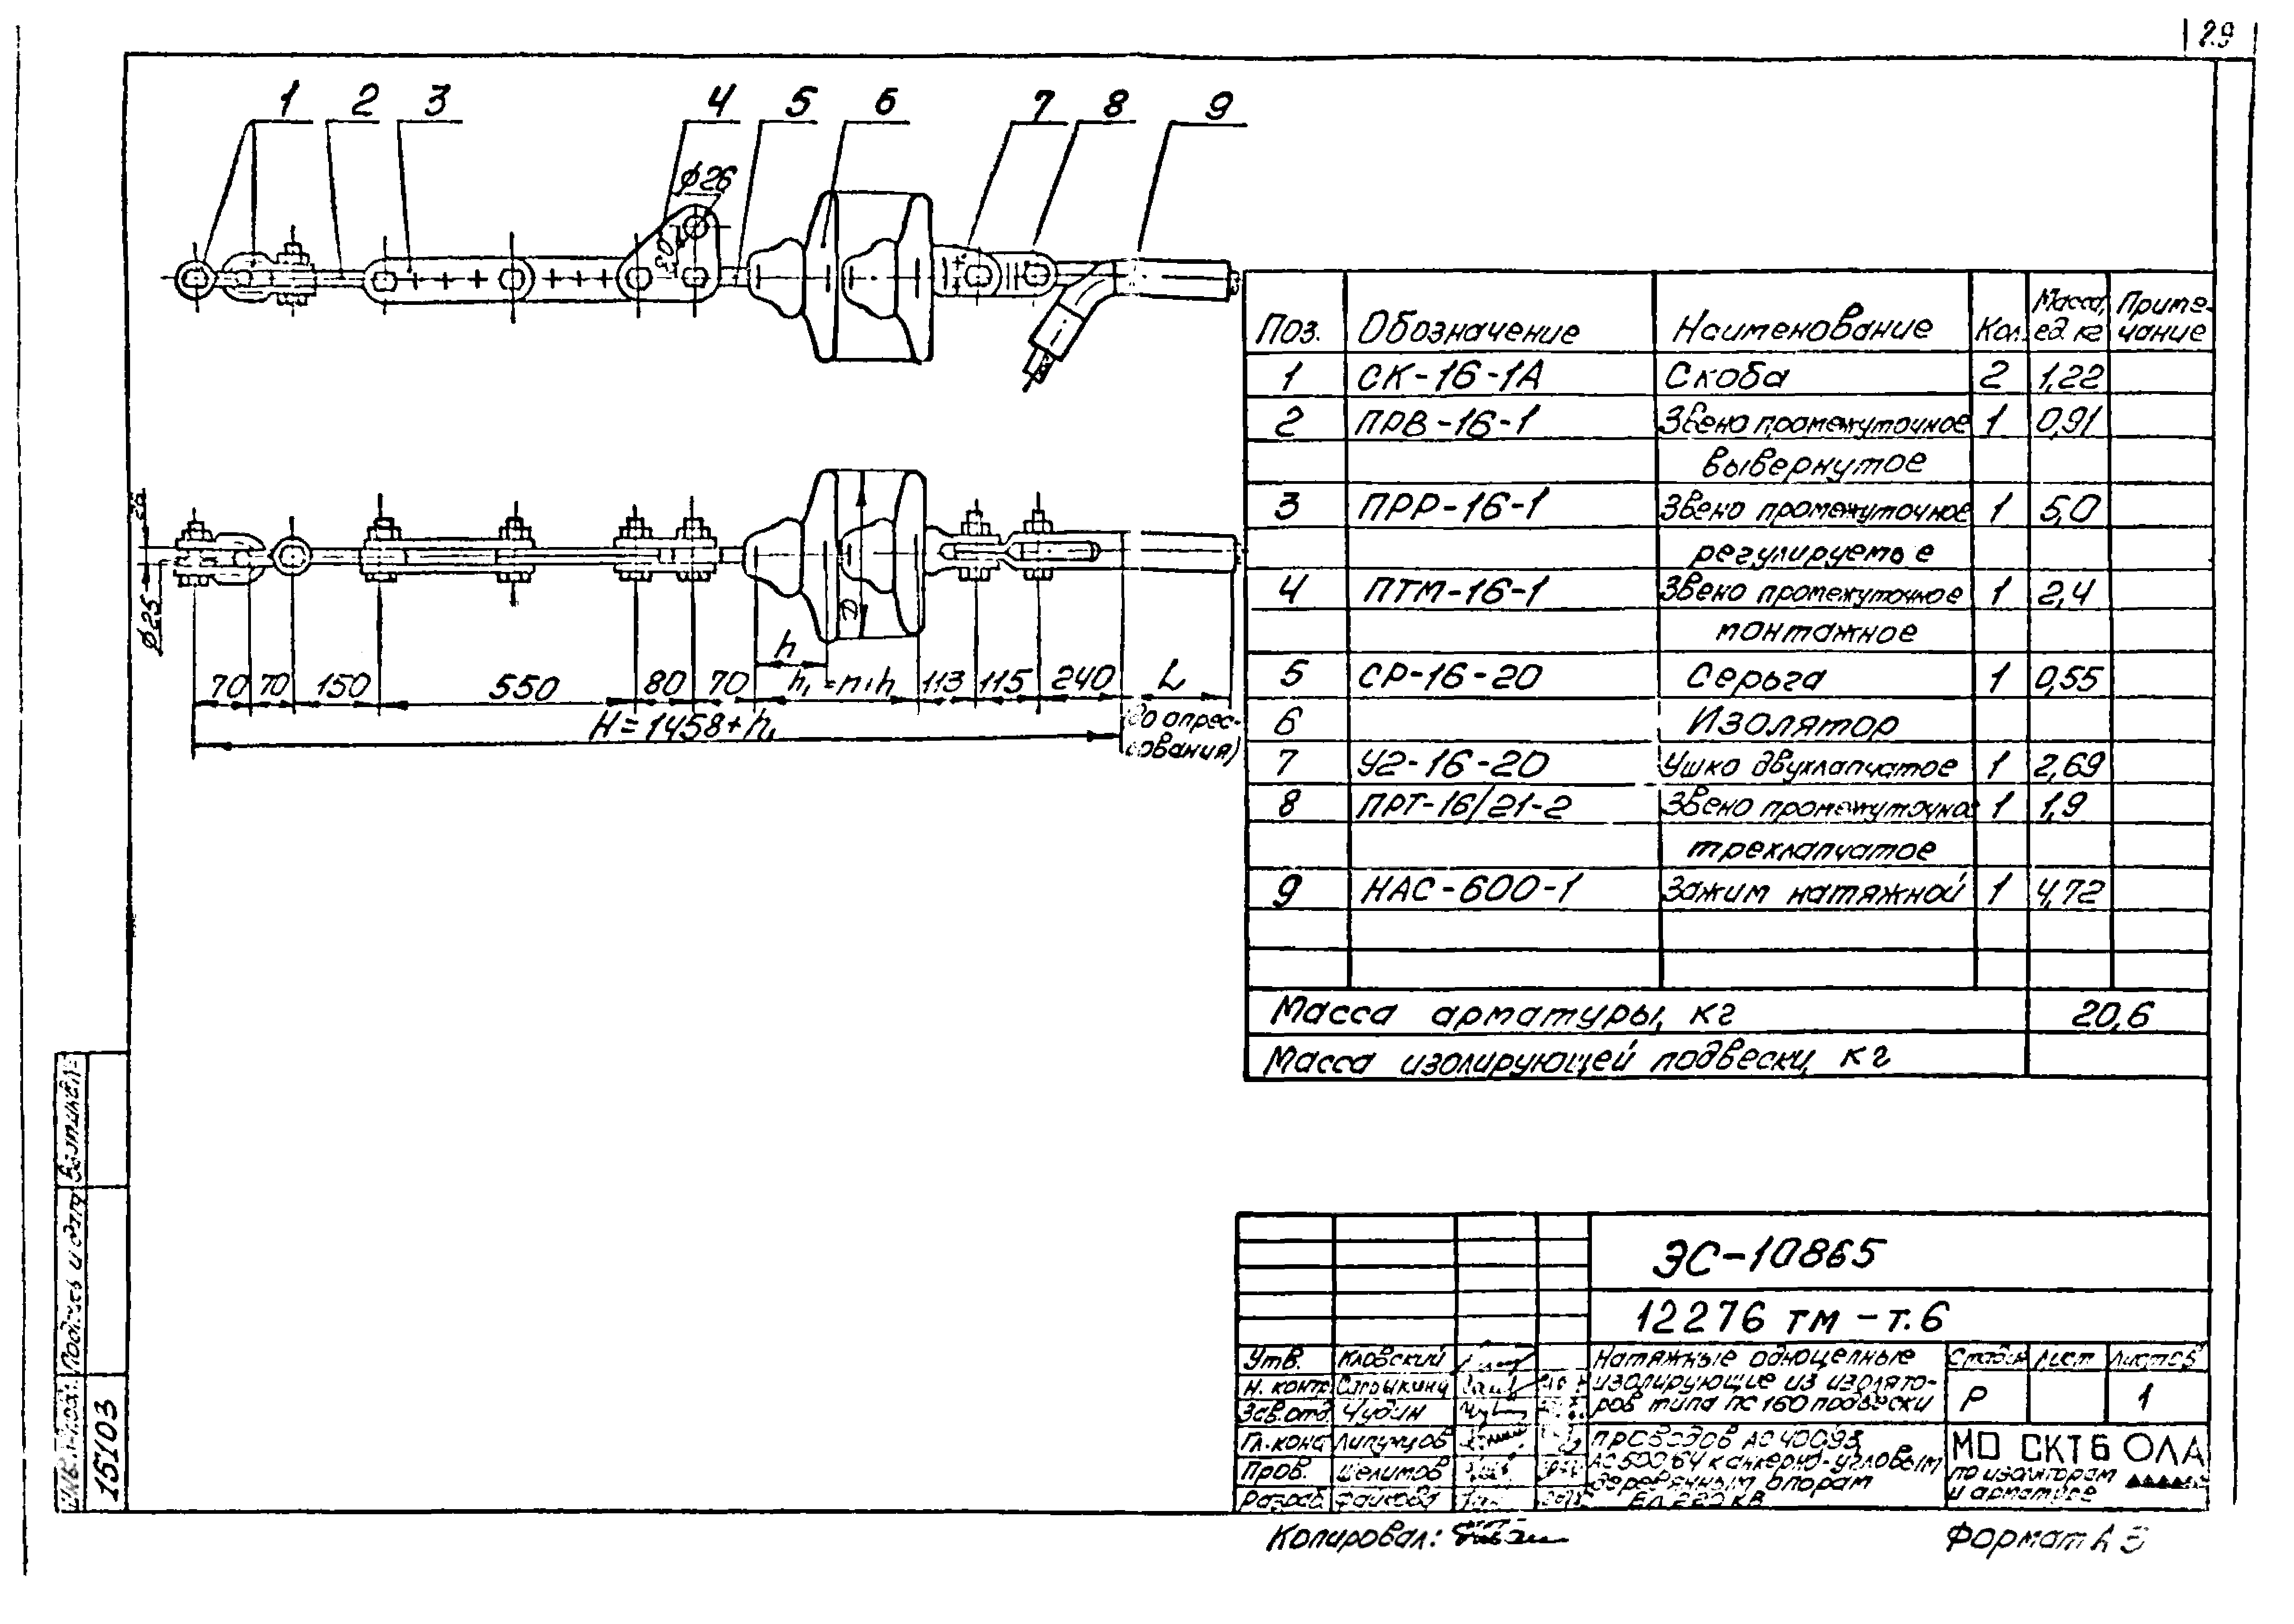 29
1 2 3 4 5 6 7 8 9
⌀26
80
⌀25
D
h
70 70 150 550 80 70 h₁=n·h 113 115 240 L
H=1458+h₁
(до опрес-
сования)
Поз. Обозначение Наименование Кол. Масса, ед. кг Приме-чание
1 СК-16-1А Скоба 2 1,22
2 ПРВ-16-1 Звено промежуточное 1 0,91
вывернутое
3 ПРР-16-1 Звено промежуточное 1 5,0
регулируемое
4 ПТМ-16-1 Звено промежуточное 1 2,4
монтажное
5 СР-16-20 Серьга 1 0,55
6 Изолятор
7 У2-16-20 Ушко двухлапчатое 1 2,69
8 ПРТ-16/21-2 Звено промежуточное 1 1,9
трехлапчатое
9 НАС-600-1 Зажим натяжной 1 4,72
Масса арматуры, кг 20,6
Масса изолирующей подвески, кг
Подпись и дата
15103
ЭС-10865
12276 тм-т.6
Утв. Кловский
Н. контр. Старыкина
Зав. отд. Чудин
Гл. конс
Пров. Шелимов
Разраб.
Натяжные одноцепные
изолирующие из изолято-
ров типа ПС 160 подвески
проводов АС 400/93,
АС 500/64 к анкерно-угловым
деревянным опорам
ВЛ 220 кВ
Стадия Лист Листов
Р 1
МО СКТБ ОЛА
по изоляторам
и арматуре
Копировал:
Формат А3